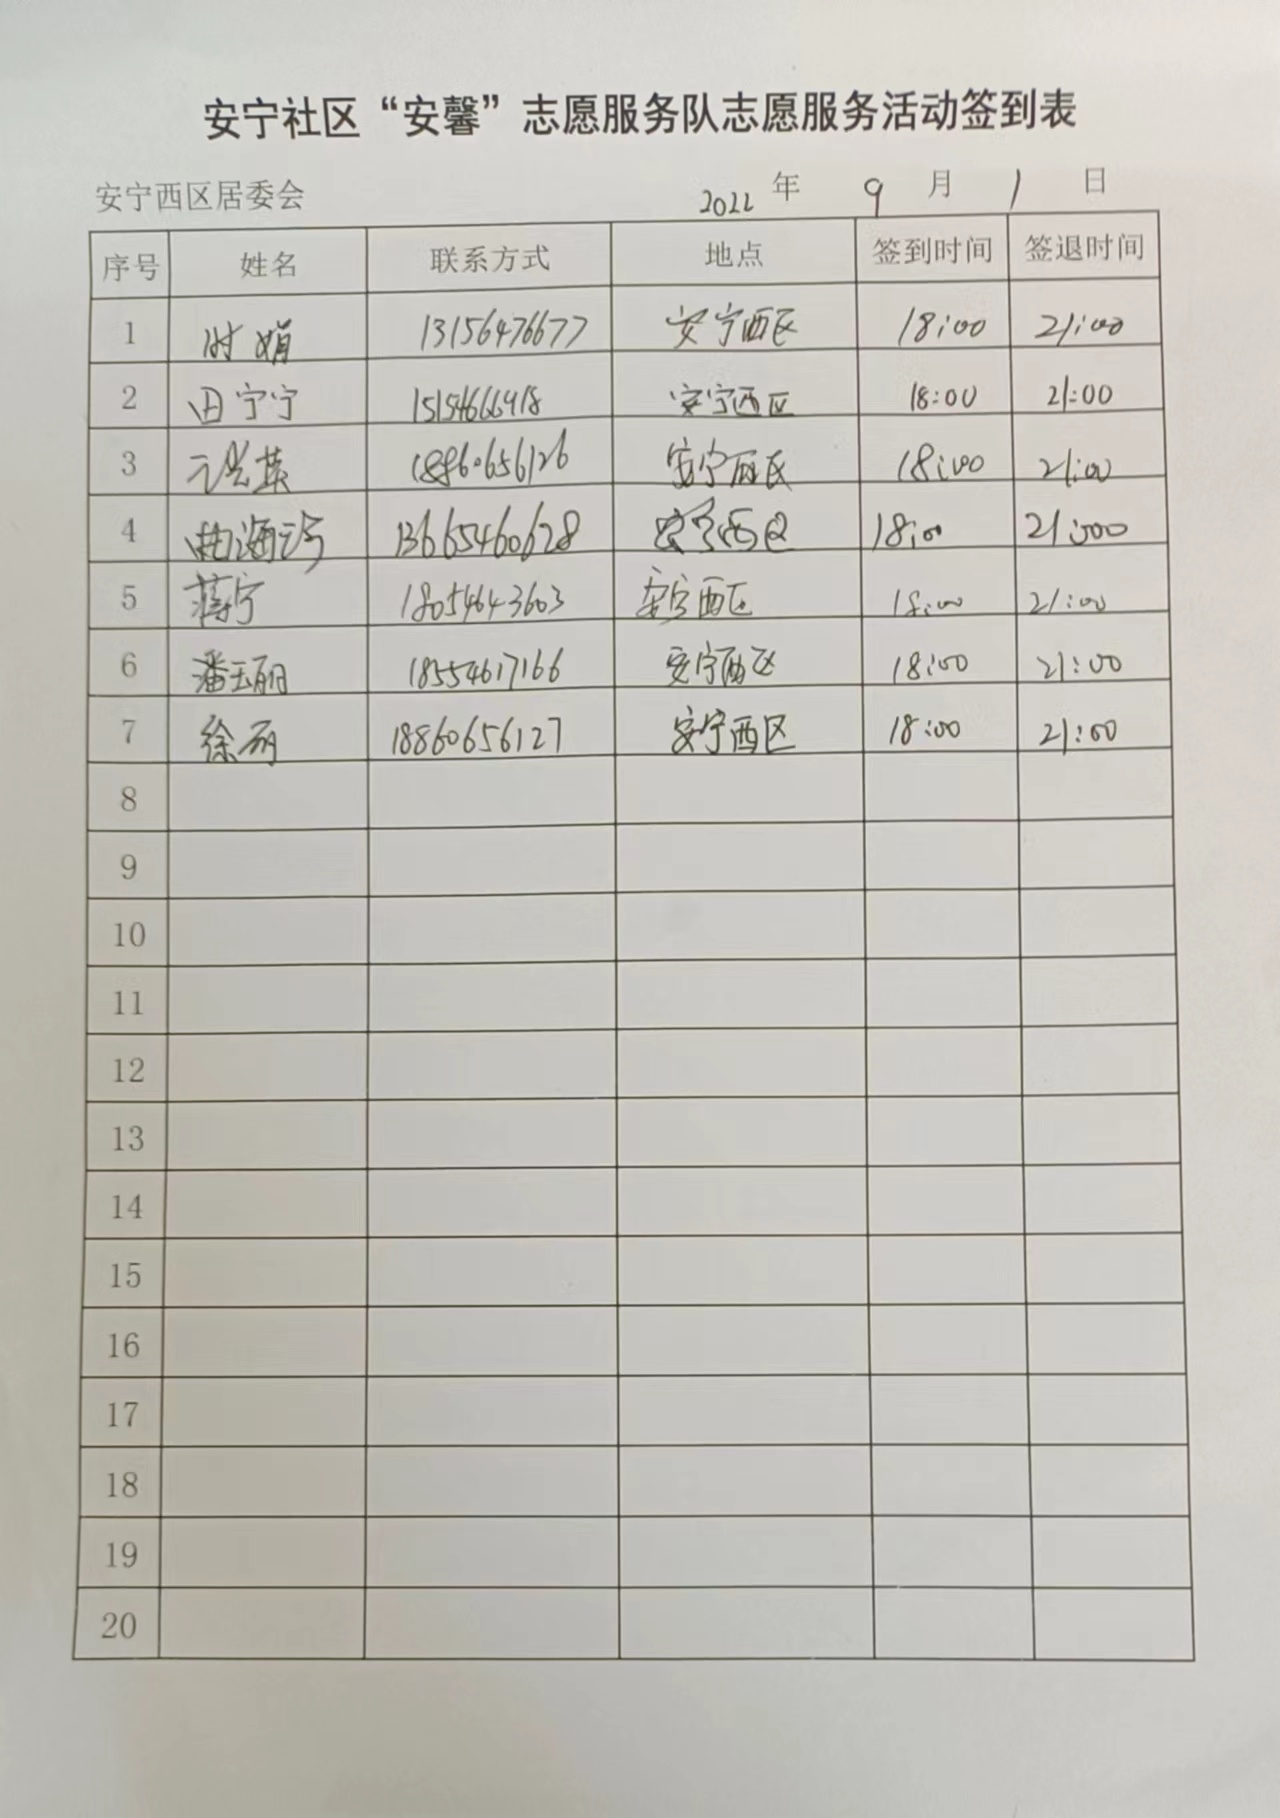 安宁社区“安馨”志愿服务队志愿服务活动签到表
安宁西区居委会 2022 年 9 月 1 日
序号 姓名 联系方式 地点 签到时间 签退时间
1 时娟 13156476677 安宁西区 18:00 21:00
2 田宁宁 安宁西区 18:00 21:00
3 18860656126 安宁西区 18:00 21:00
4 13665460628 安宁西区 18:00 21:000
5 蒋宁 18054643603 安宁西区 18:00 21:00
6 潘玉丽 18554617166 安宁西区 18:00 21:00
7 徐丽 18860656127 安宁西区 18:00 21:00
8
9
10
11
12
13
14
15
16
17
18
19
20